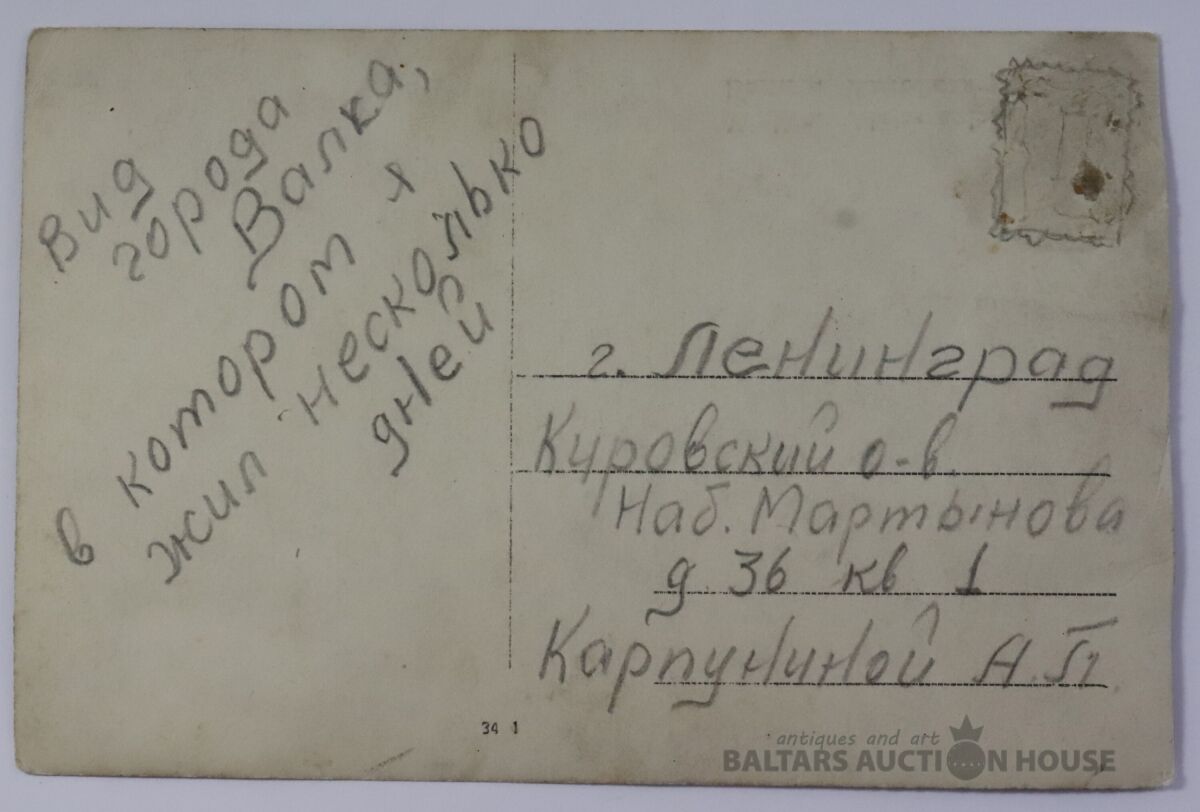 Вид
города
Валка,
в котором я
жил несколько
дней
г. Ленинград
Куровский о-в.
Наб. Мартынова
д 36 кв 1
Карпуниной А.П.
34 1
antiques and art
BALTARS AUCTION HOUSE